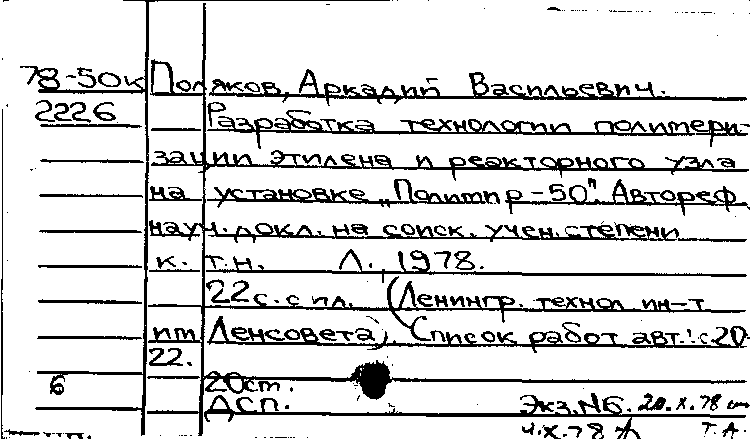 78-50к Поляков, Аркадий Васильевич.
2226 Разработка технологии полимери-
зации этилена и реакторного узла
на установке „Полимир-50". Автореф
науч. докл. на соиск. учен. степени
к. т. н. Л., 1978.
22 с. с ил. (Ленингр. технол ин-т
им Ленсовета). Список работ авт.: с 20-
22.
6 20 ст.
ДСП. Экз. №6. 20.X.78
4.X.78 Т.А.